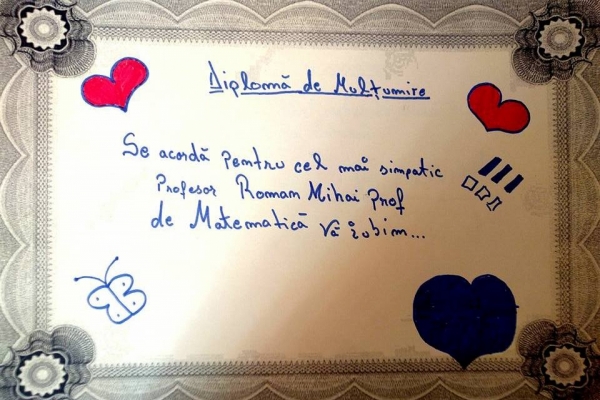 Diplomă de Mulțumire
Se acordă pentru cel mai simpatic
Profesor Roman Mihai Prof
de Matematică Vă iubim...